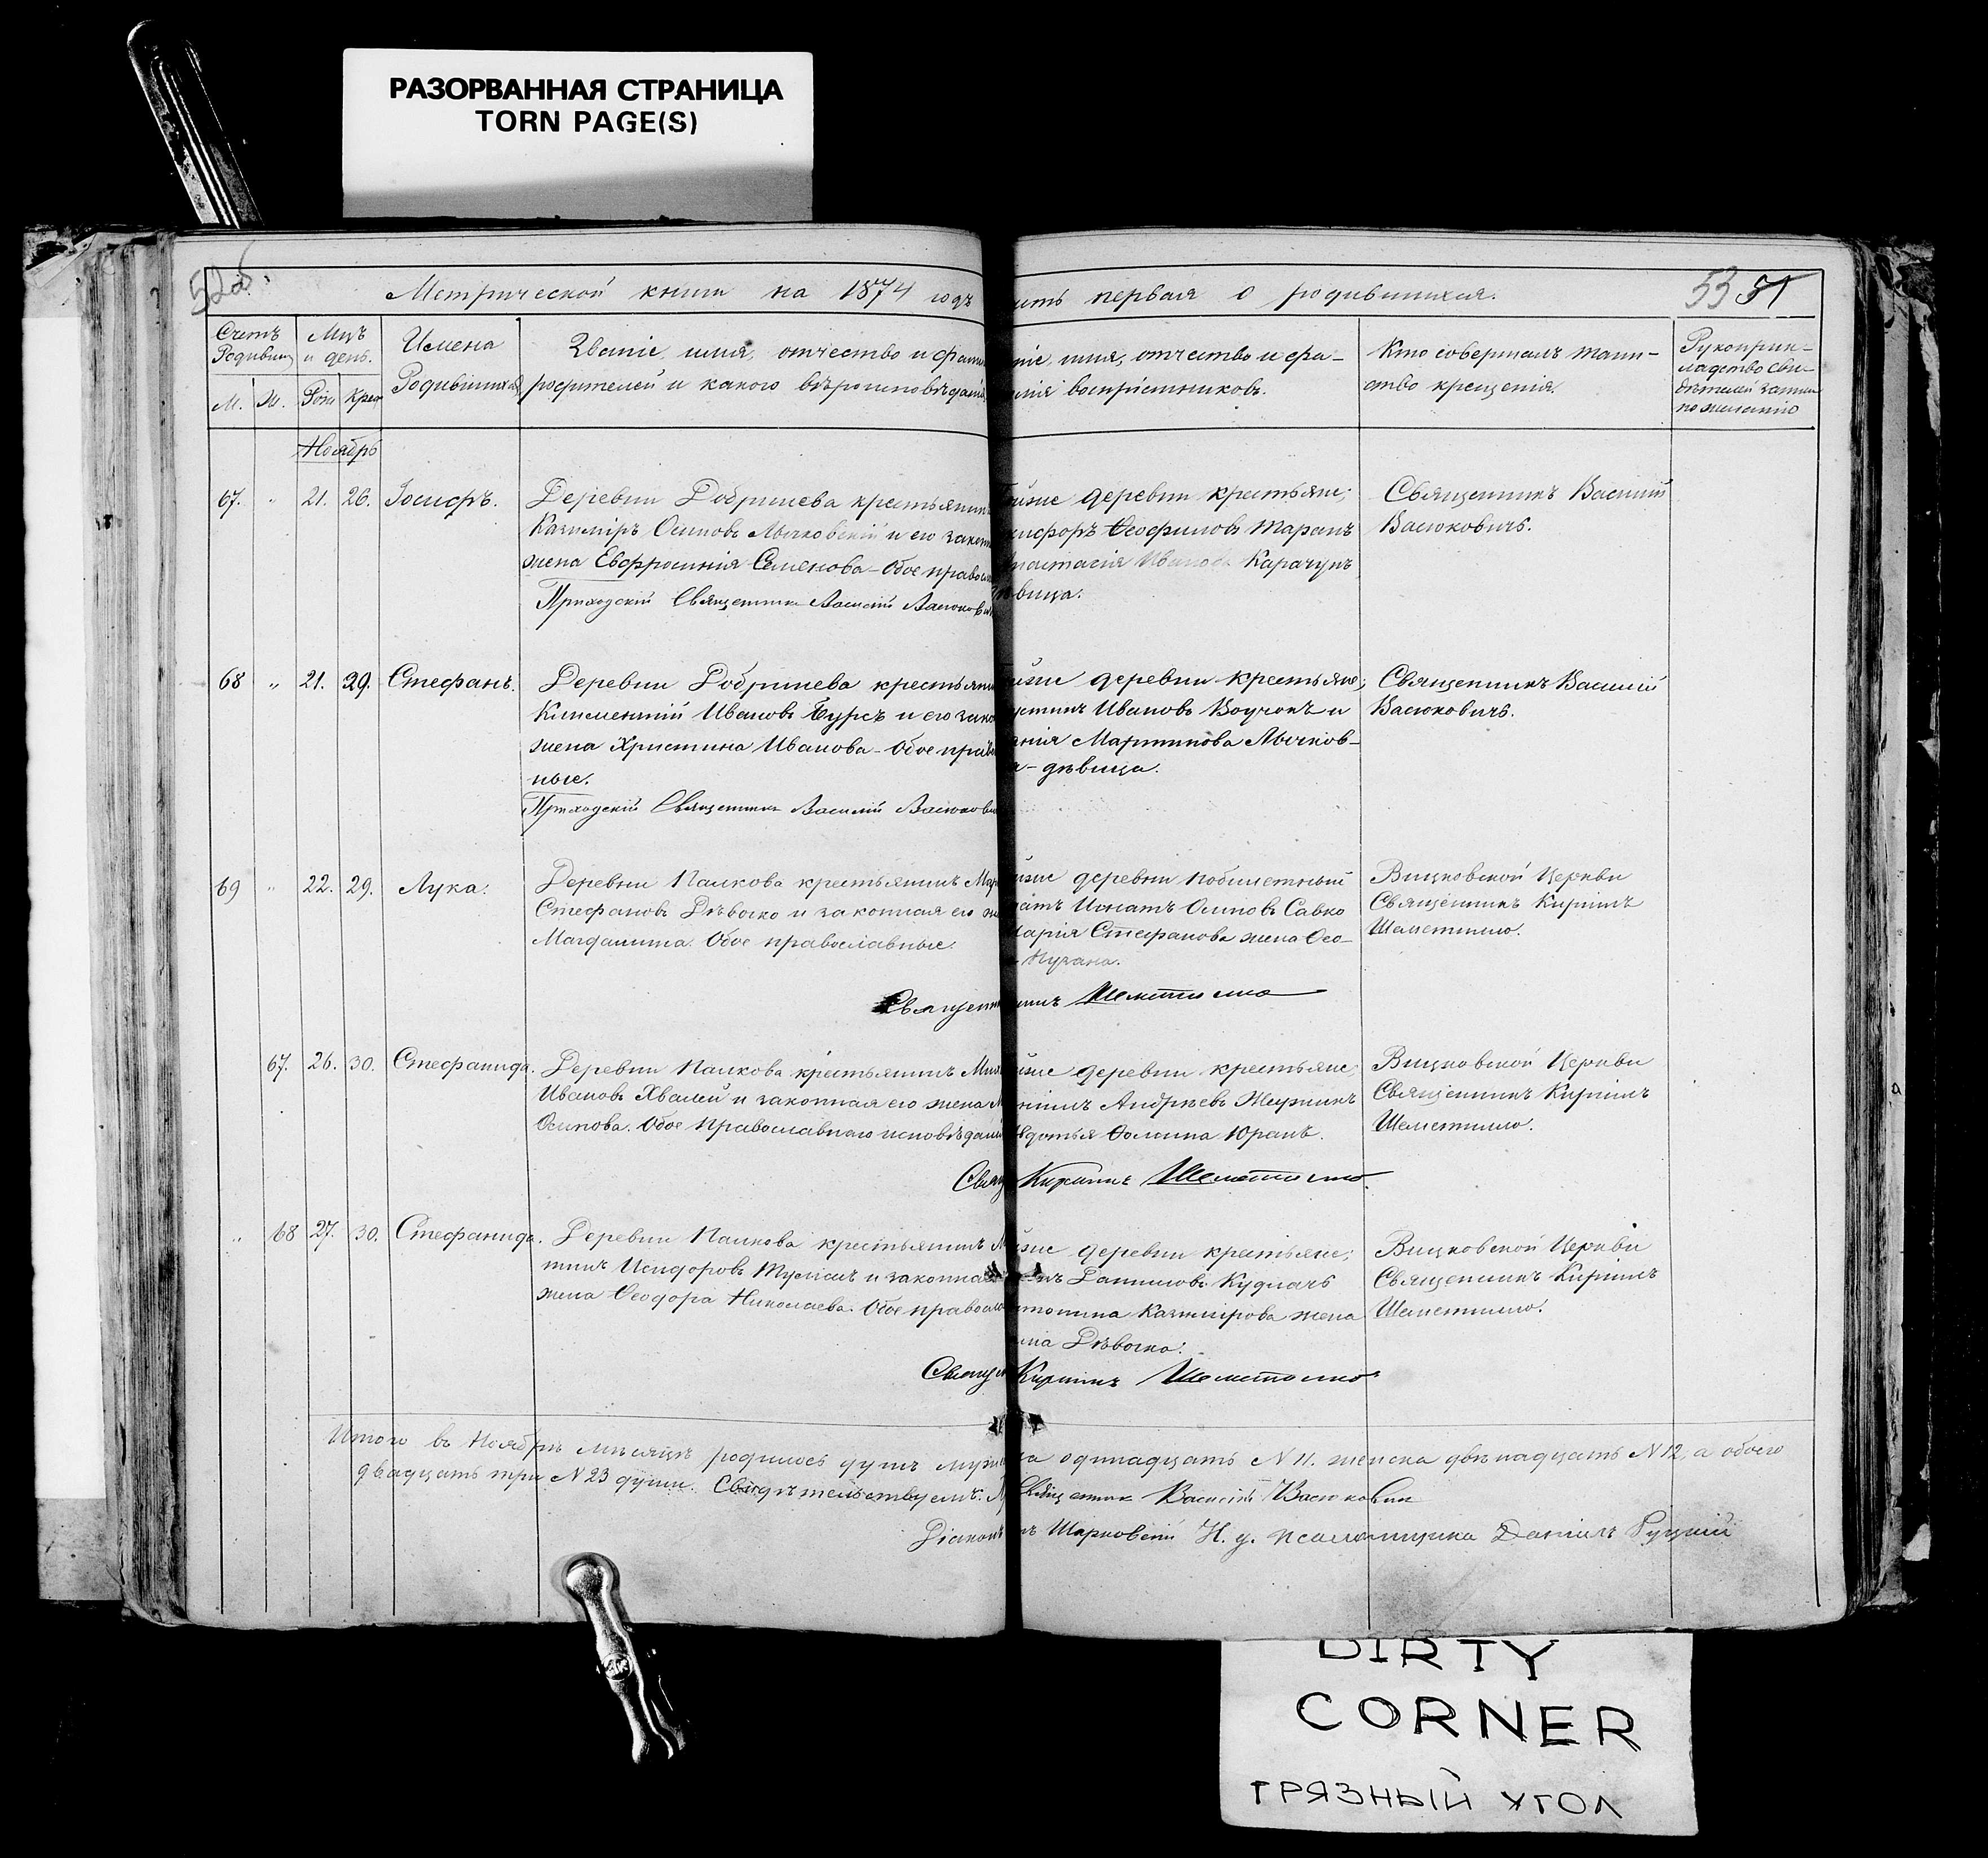 РАЗОРВАННАЯ СТРАНИЦА
TORN PAGE(S)
53 51
Метрической книги на 1874 годъ
первая о родившихся.
Счетъ
Родивших
М. Ж.
Мцъ
и день.
Рож Крещ
Имена
Родившихся
Званіе, имя, отчество и фами
родителей и какого вѣроисповѣданія
ніе, имя, отчество и фа-
милія воспріемниковъ.
Кто совершалъ таин-
ство крещенія.
Рукоприк-
ладство сви-
дѣтелей записи
по желанію
Ноябрь
67. " 21. 26. Іосифъ.
Деревни Добринева крестьянинъ
Казиміръ Осиповъ Лычковскій и его закон
жена Евфросинія Семенова - Обое правосл
Приходскій Священникъ Василій Васюкович
деревни крестьяне;
Никифоръ Ѳеофиловъ Таранъ
Анастасія Иванова Карачунъ
дѣвица.
Священникъ Василій
Васюковичъ.
68 " 21. 29. Стефанъ.
Деревни Добринева крестьянин
Климентій Ивановъ Бурсъ и его зако
жена Христина Иванова - Обое прав
ные.
Приходскій Священникъ Василій Васюкови
деревни крестьяне;
устинъ Ивановъ Воучокъ и
анія Мартинова Лычков-
а - дѣвица.
Священникъ Василій
Васюковичъ.
69 " 22. 29. Лука.
Деревни Палкова крестьянинъ Мар
Стефановъ Дѣвочко и законная его
Магдалина. Обое православные.
деревни побилетный
датъ Игнатъ Осиповъ Савко
Марія Стефанова жена Осо-
Пугача.
Вицковской Церкви
Священникъ Кириллъ
Шеметилло.
Священникъ Шеметилло
67. 26. 30. Стефанида.
Деревни Палкова крестьянинъ Мих
Ивановъ Хвалей и законная его жена М
Осипова. Обое Православнаго исповѣдані
деревни крестьяне;
Андрѣевъ Жершикъ
Евдотья Ѳомина Юранъ.
Вицковской Церкви
Священникъ Кириллъ
Шеметилло.
Свящ Кириллъ Шеметилло.
" 68 27. 30. Стефанида.
Деревни Палкова крестьянинъ
тинъ Исидоровъ и законная
жена Ѳеодора Николаева. Обое правосл
деревни крестьяне;
Даниловъ Кудлачъ
Антонина Казимірова жена
Дѣвочко.
Вицковской Церкви
Священникъ Кириллъ
Шеметилло.
Священ Кириллъ Шеметилло
Итого въ Ноябрѣ мѣсяцѣ родилось душъ муже
ка одинадцать N 11. женска двѣнадцать N 12, а обоего
двадцать три N 23 души. Свидѣтельствуемъ.
Священникъ Василій Васюкович
Діаконъ Шарковскій И. д. псаломщика Даніилъ Руцкій
DIRTY
CORNER
ГРЯЗНЫЙ УГОЛ